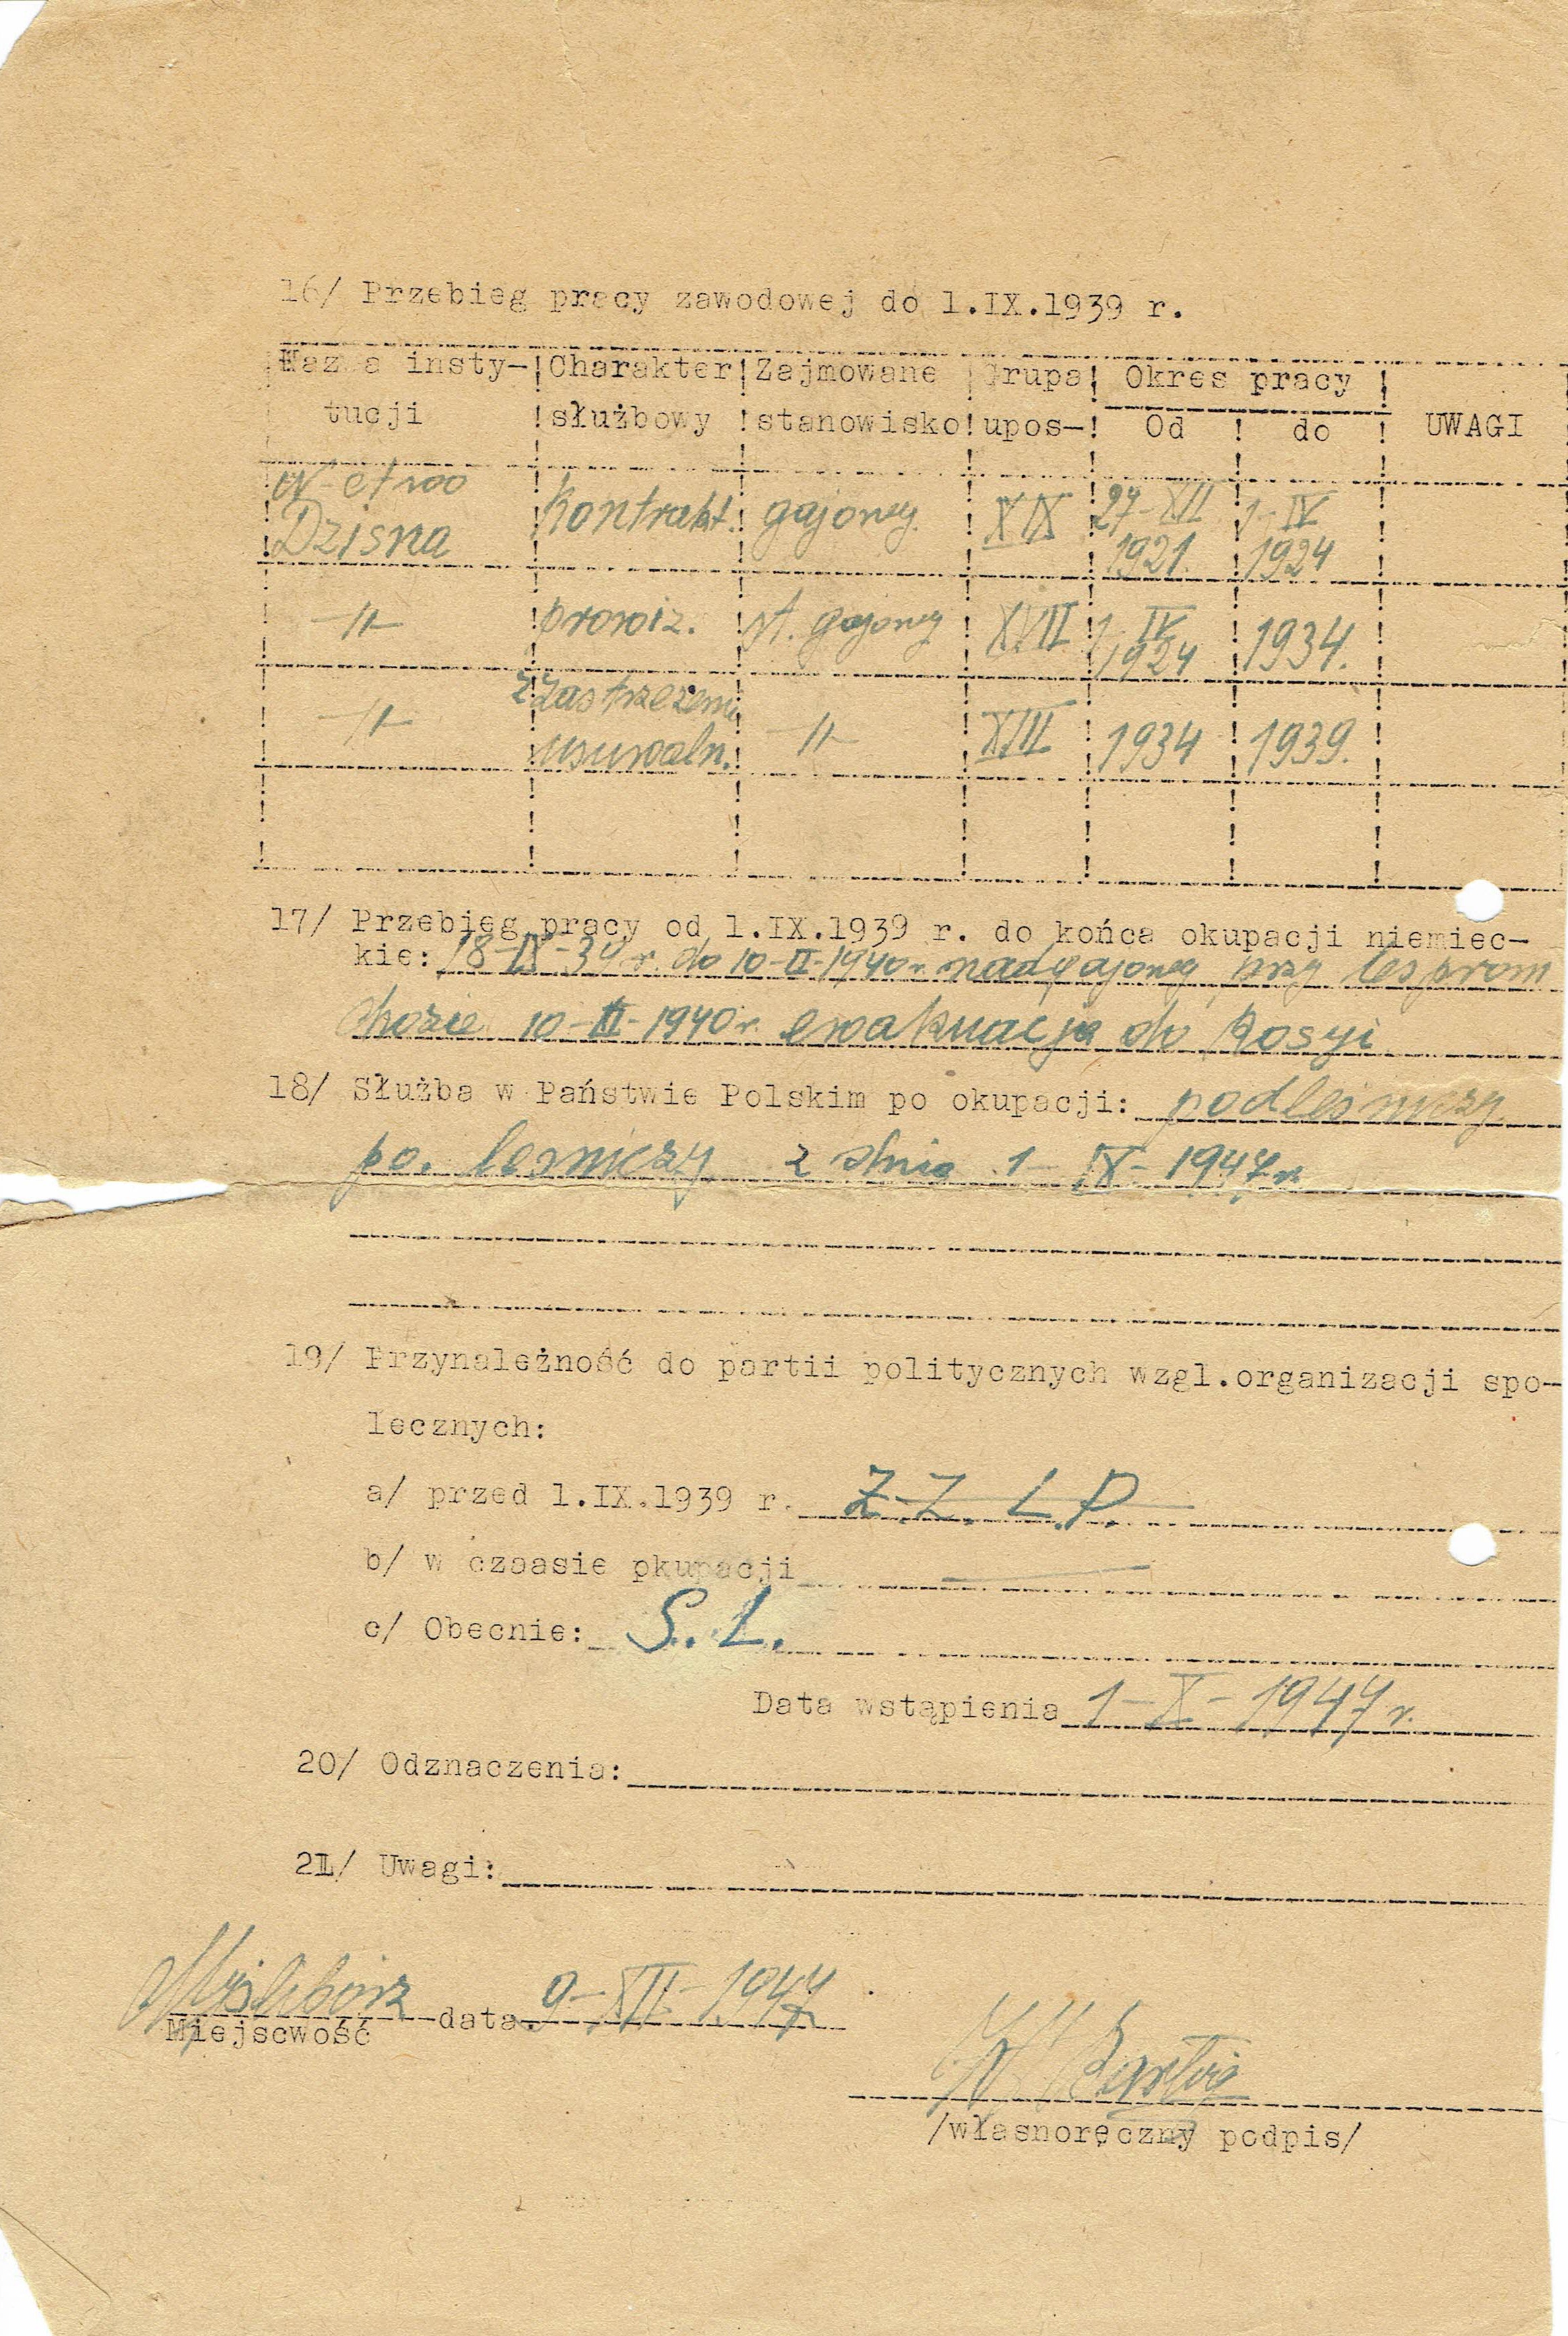 16/ Przebieg pracy zawodowej do 1.IX.1939 r.
Nazwa insty- ! Charakter ! Zajmowane ! Grupa ! Okres pracy !
tucji ! służbowy ! stanowisko ! upos- ! Od ! do ! UWAGI
N-ctwo
Dzisna ! kontrakt. ! gajowy ! XIX ! 27-XII 1921. ! 1-IV 1924
-//- ! prowiz. ! st. gajowy ! XVII ! 1 IV 1924 ! 1934.
-//- ! z zastrzeżeni usuwaln. ! -//- ! XIII ! 1934 ! 1939.
17/ Przebieg pracy od 1.IX.1939 r. do końca okupacji niemiec-
kie: 18-IX-39 r. do 10-II-1940 r. nadgajowy przy lesprom
chozie 10-II-1940 r. ewakuacja do Rosyi
18/ Służba w Państwie Polskim po okupacji: podleśniczy
po. leśniczy z dnia 1-IX-1947 r.
19/ Przynależność do partii politycznych wzgl.organizacji spo-
lecznych:
a/ przed 1.IX.1939 r. Z.Z. L.P.
b/ w czaasie pkupacji —
c/ Obecnie: S.L.
Data wstąpienia 1-X-1947 r.
20/ Odznaczenia:
21/ Uwagi:
Myślibórz data 9-XII-1947
Miejscwość
/własnoręczny podpis/